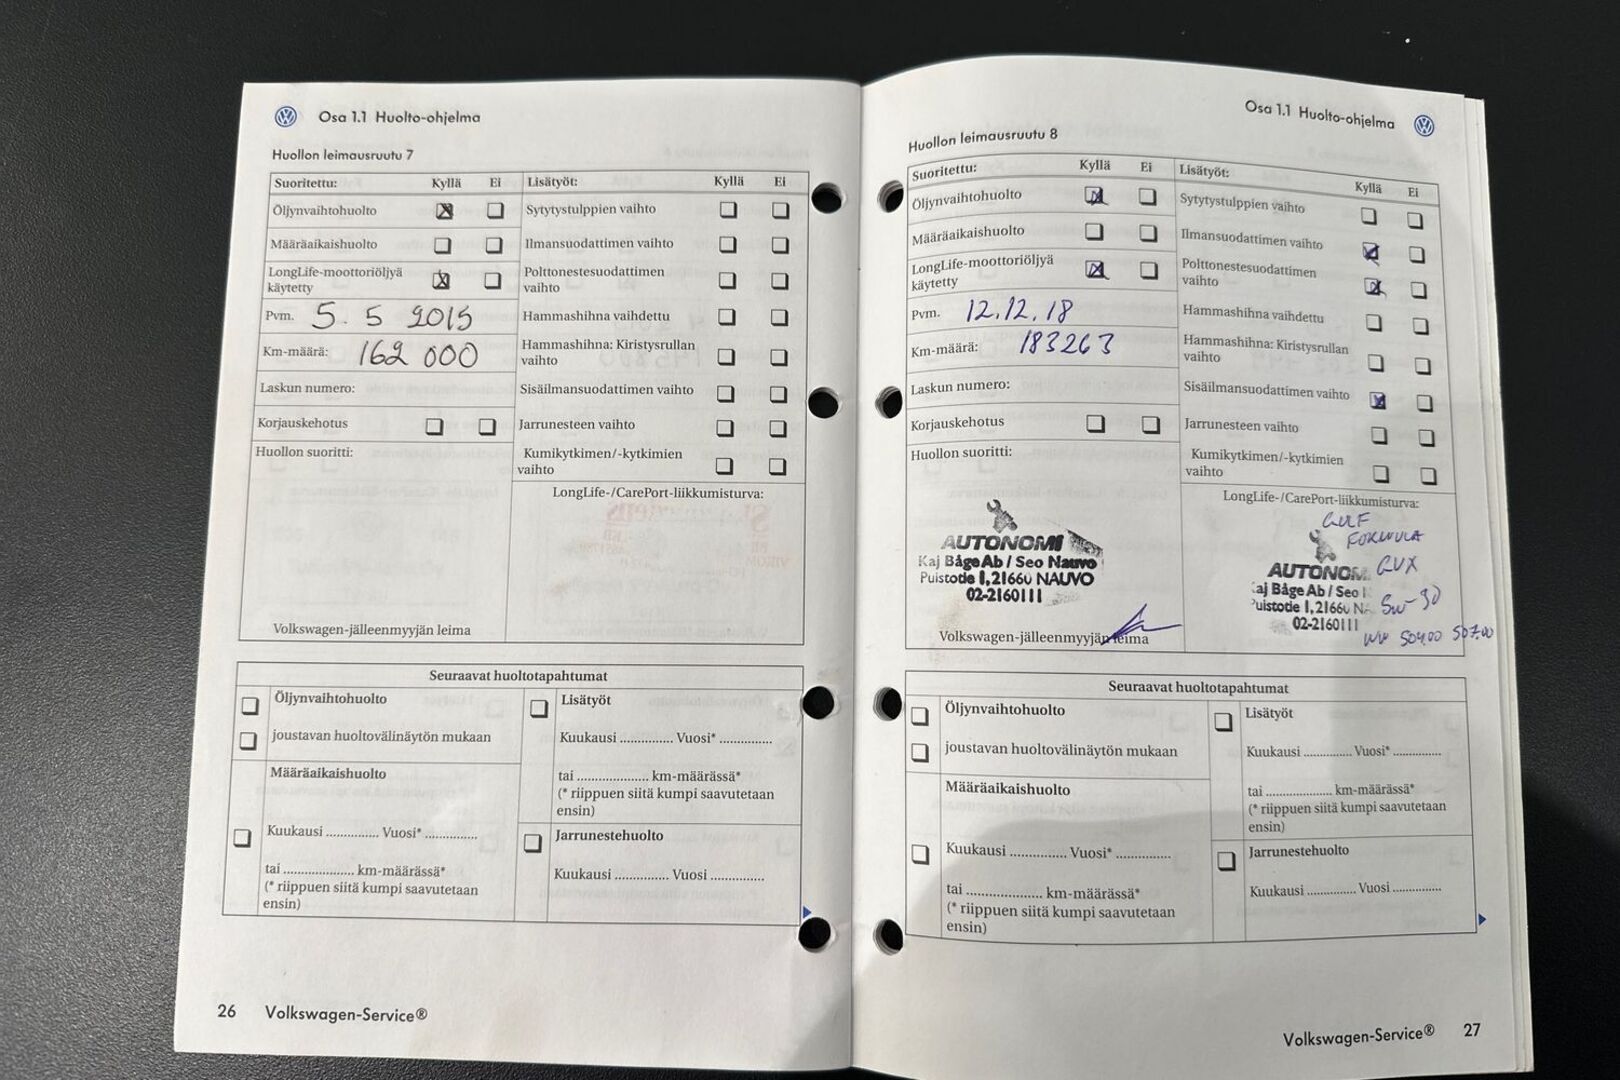 Osa 1.1 Huolto-ohjelma
Huollon leimausruutu 7
Suoritettu: Kyllä Ei
Öljynvaihtohuolto
Määräaikaishuolto
LongLife-moottoriöljyä
käytetty
Pvm. 5. 5 2015
Km-määrä: 162 000
Laskun numero:
Korjauskehotus
Huollon suoritti:
Volkswagen-jälleenmyyjän leima
Lisätyöt: Kyllä Ei
Sytytystulppien vaihto
Ilmansuodattimen vaihto
Polttonestesuodattimen
vaihto
Hammashihna vaihdettu
Hammashihna: Kiristysrullan
vaihto
Sisäilmansuodattimen vaihto
Jarrunesteen vaihto
Kumikytkimen/-kytkimien
vaihto
LongLife-/CarePort-liikkumisturva:
Seuraavat huoltotapahtumat
Öljynvaihtohuolto
joustavan huoltovälinäytön mukaan
Määräaikaishuolto
Kuukausi ............... Vuosi* ...............
tai ..................... km-määrässä*
(* riippuen siitä kumpi saavutetaan
ensin)
Lisätyöt
Kuukausi ............... Vuosi* ...............
tai ..................... km-määrässä*
(* riippuen siitä kumpi saavutetaan
ensin)
Jarrunestehuolto
Kuukausi ............... Vuosi ...............
26 Volkswagen-Service®
Osa 1.1 Huolto-ohjelma
Huollon leimausruutu 8
Suoritettu: Kyllä Ei
Öljynvaihtohuolto
Määräaikaishuolto
LongLife-moottoriöljyä
käytetty
Pvm. 12.12.18
Km-määrä: 183263
Laskun numero:
Korjauskehotus
Huollon suoritti:
AUTONOMI
Kaj Båge Ab / Seo Nauvo
Puistotie 1,21660 NAUVO
02-2160111
Volkswagen-jälleenmyyjän leima
Lisätyöt: Kyllä Ei
Sytytystulppien vaihto
Ilmansuodattimen vaihto
Polttonestesuodattimen
vaihto
Hammashihna vaihdettu
Hammashihna: Kiristysrullan
vaihto
Sisäilmansuodattimen vaihto
Jarrunesteen vaihto
Kumikytkimen/-kytkimien
vaihto
LongLife-/CarePort-liikkumisturva:
GULF
FORMULA
GVX
5W-30
VW 504.00 507.00
AUTONOM
aj Båge Ab / Seo
uistotie 1,21660 NA
02-2160111
Seuraavat huoltotapahtumat
Öljynvaihtohuolto
joustavan huoltovälinäytön mukaan
Määräaikaishuolto
Kuukausi ............... Vuosi* ...............
tai ..................... km-määrässä*
(* riippuen siitä kumpi saavutetaan
ensin)
Lisätyöt
Kuukausi ............... Vuosi* ...............
tai ..................... km-määrässä*
(* riippuen siitä kumpi saavutetaan
ensin)
Jarrunestehuolto
Kuukausi ............... Vuosi ...............
Volkswagen-Service® 27